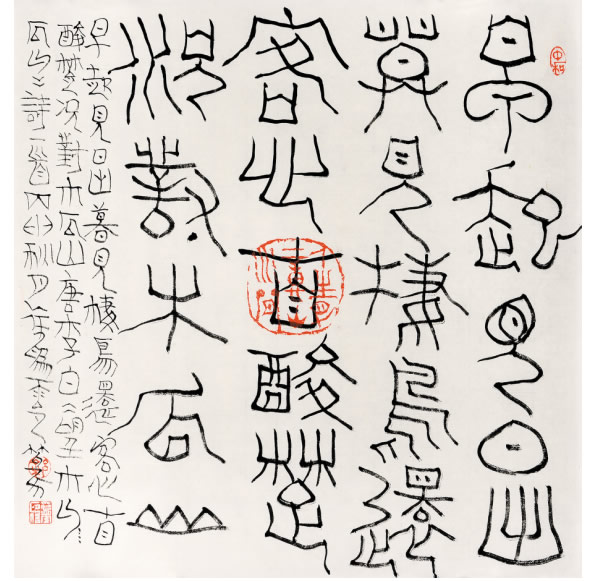 早起見日出
莫見棲鳥還
客心自酸楚
況對木瓜山
早起見日出暮見棲鳥還客心自
酸楚況對木瓜山唐李白
詩一首